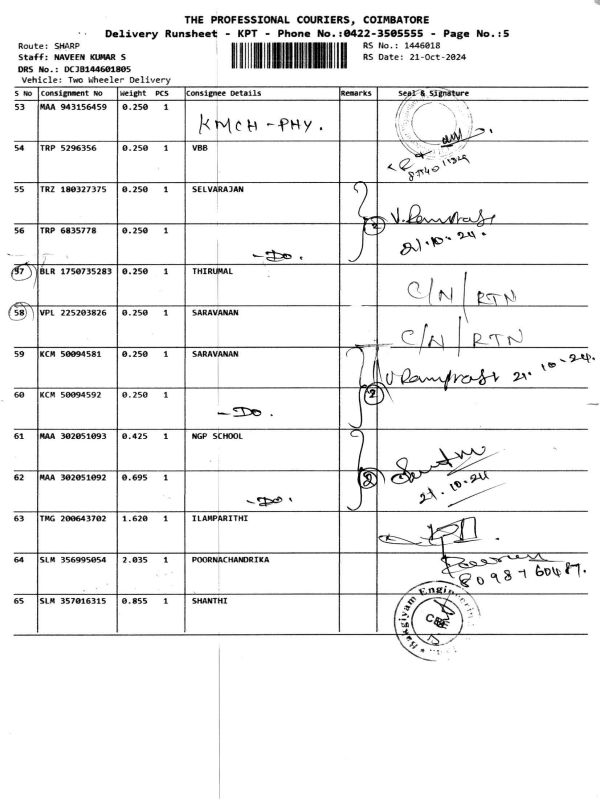 THE PROFESSIONAL COURIERS, COIMBATORE
Delivery Runsheet - KPT - Phone No.:0422-3505555 - Page No.:5
Route: SHARP RS No.: 1446018
Staff: NAVEEN KUMAR S RS Date: 21-Oct-2024
DRS No.: DCJB144601805
Vehicle: Two Wheeler Delivery
S No Consignment No Weight PCS Consignee Details Remarks Seal & Signature
53 MAA 943156459 0.250 1
KMCH-PHY.
54 TRP 5296356 0.250 1 VBB
55 TRZ 180327375 0.250 1 SELVARAJAN
2
56 TRP 6835778 0.250 1
21.10.24.
-Do.
57 BLR 1750735283 0.250 1 THIRUMAL
C/N/RTN
58 VPL 225203826 0.250 1 SARAVANAN
C/N/RTN
59 KCM 50094581 0.250 1 SARAVANAN
21.10.24.
60 KCM 50094592 0.250 1 2
-Do.
61 MAA 302051093 0.425 1 NGP SCHOOL
62 MAA 302051092 0.695 1 2
21.10.24
-Do.
63 TMG 200643702 1.620 1 ILAMPARITHI
64 SLM 356995054 2.035 1 POORNACHANDRIKA
8098760487.
65 SLM 357016315 0.855 1 SHANTHI